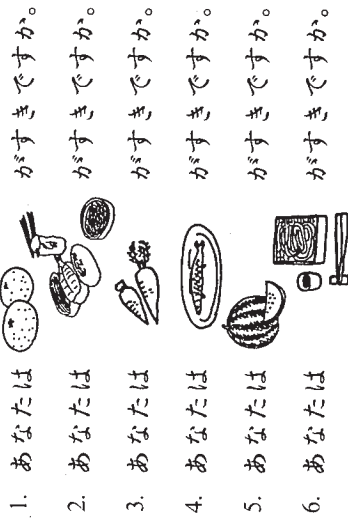 1. あなたは がすきですか。
2. あなたは がすきですか。
3. あなたは がすきですか。
4. あなたは がすきですか。
5. あなたは がすきですか。
6. あなたは がすきですか。